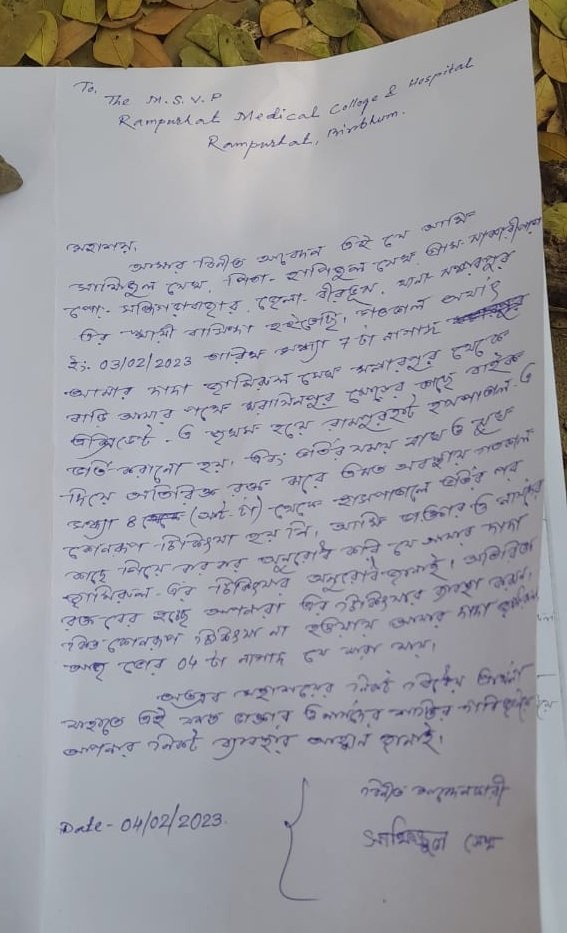 To,
The M.S.V.P
Rampurhat Medical College & Hospital
Rampurhat, Birbhum.
মহাশয়,
আমার বিনীত আবেদন এই যে আমি
সেখ, পিতা- সেখ গ্রাম-
পো- জেলা- বীরভূম, থানা মল্লারপুর
এর স্থায়ী বাসিন্দা হইতেছি। গতকাল অর্থাৎ
ইং 03/02/2023 তারিখ সন্ধ্যা 7 টা নাগাদ
আমার দাদা সেখ মল্লারপুর থেকে
বাড়ি আসার পথে মোড়ের কাছে বাইক
এক্সিডেন্ট ও জখম হয়ে রামপুরহাট হসপাতাল এ
ভর্তি করানো হয়। এবং ভর্তির সময় ও মুখ
দিয়ে অতিরিক্ত রক্ত অবস্থায় গতকাল
সন্ধ্যা 8 (আট টা) থেকে হাসপাতালে ভর্তির পর
কোনরূপ চিকিৎসা হয় নি। আমি ডাক্তার ও নার্সদের
কাছে গিয়ে বারবার অনুরোধ করি যে আমার দাদা
এর চিকিৎসার অনুরোধ জানাই। অতিরিক্ত
রক্ত বের হচ্ছে আপনারা এর চিকিৎসার ব্যবস্থা করুন,
কিন্তু কোনরূপ চিকিৎসা না হওয়ায় আমার দাদা
ভোর 04 টা নাগাদ সে মারা যায়।
অতএব মহাশয়ের নিকট প্রার্থনা
যাহাতে এই সমস্ত ডাক্তার ও নার্সদের শাস্তির
আপনার নিকট ব্যবস্থার জানাই।
বিনীত আবেদনকারী
Date - 04/02/2023.
সেখ